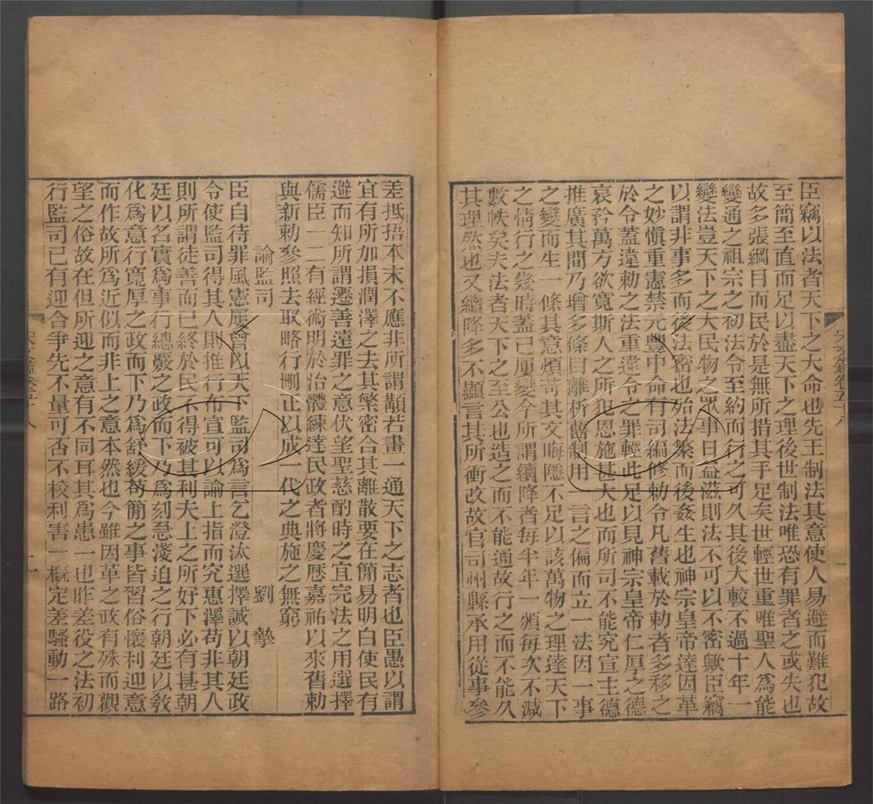 臣竊以法者天下之大命也先王制法其意使人易避而難犯故
至簡至直而足以盡天下之理後世制法唯恐有罪者之或失也
故多張綱目而民於是無所措其手足矣世輕世重唯聖人爲能
變通之祖宗之初法令至約而行之可久其後大較不過十年一
變法豈天下之大民物之眾事日益滋則法不可以不密歟臣竊
以謂非事多而後法密也殆法繁而後姦生也神宗皇帝達因革
之妙愼重憲禁元豐中命有司編修勅令凡舊載於勅者多移之
於令蓋違勅之法重違令之罪輕此足以見神宗皇帝仁厚之德
哀矜萬方欲寬斯人之所犯恩施甚大也而所司不能究宣主德
推廣其間乃增多條目離析舊制用一言之偏而立一法因一事
之變而生一條其意煩苛其文晦隱不足以該萬物之理達天下
之情行之幾時蓋已屢變今所謂續降者每半年一頒每次不減
數帙矣夫法者天下之至公也造之而不能通故行之而不能久
其理然也又續降多不顯言其所衝改故官司州縣承用從事參
宋文鑑卷五十八
差抵捂本末不應非所謂顜若畫一通天下之志者也臣愚以謂
宜有所加損潤澤之去其繁密合其離散要在簡易明白使民有
避而知所謂遷善遠罪之意伏望聖慈酌時之宜完法之用選擇
儒臣一二有經術明於治體練達民政者將慶曆嘉祐以來舊勅
與新勅參照去取略行刪正以成一代之典施之無窮
論監司 劉摯
臣自待罪風憲屢嘗以天下監司爲言乞澄汰選擇誠以朝廷政
令使監司得其人則推行布宣可以諭上指而究惠澤苟非其人
則所謂徒善而已終於民不得被其利夫上之所好下必有甚朝
廷以名實爲事行總覈之政而下乃爲刻急淺迫之行朝廷以敎
化爲意行寬厚之政而下乃爲舒緩苟簡之事皆習俗懷利迎意
而作故所爲近似而非上之意本然也今雖因革之政有殊而觀
望之俗故在但所迎之意有不同耳其爲患一也昨差役之法初
行監司已有迎合爭先不量可否不校利害一概定差騷動一路